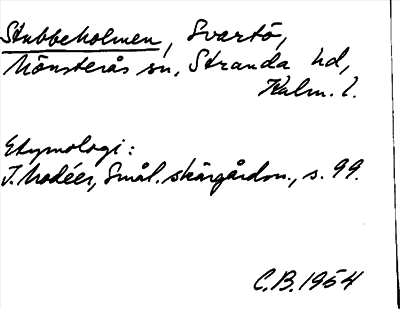 Stubbeholmen, Svartö,
Mönsterås sn, Stranda hd,
Kalm. l.
Etymologi:
J. Modéer, Smål. skärgårdsn., s. 99.
C.B. 1954